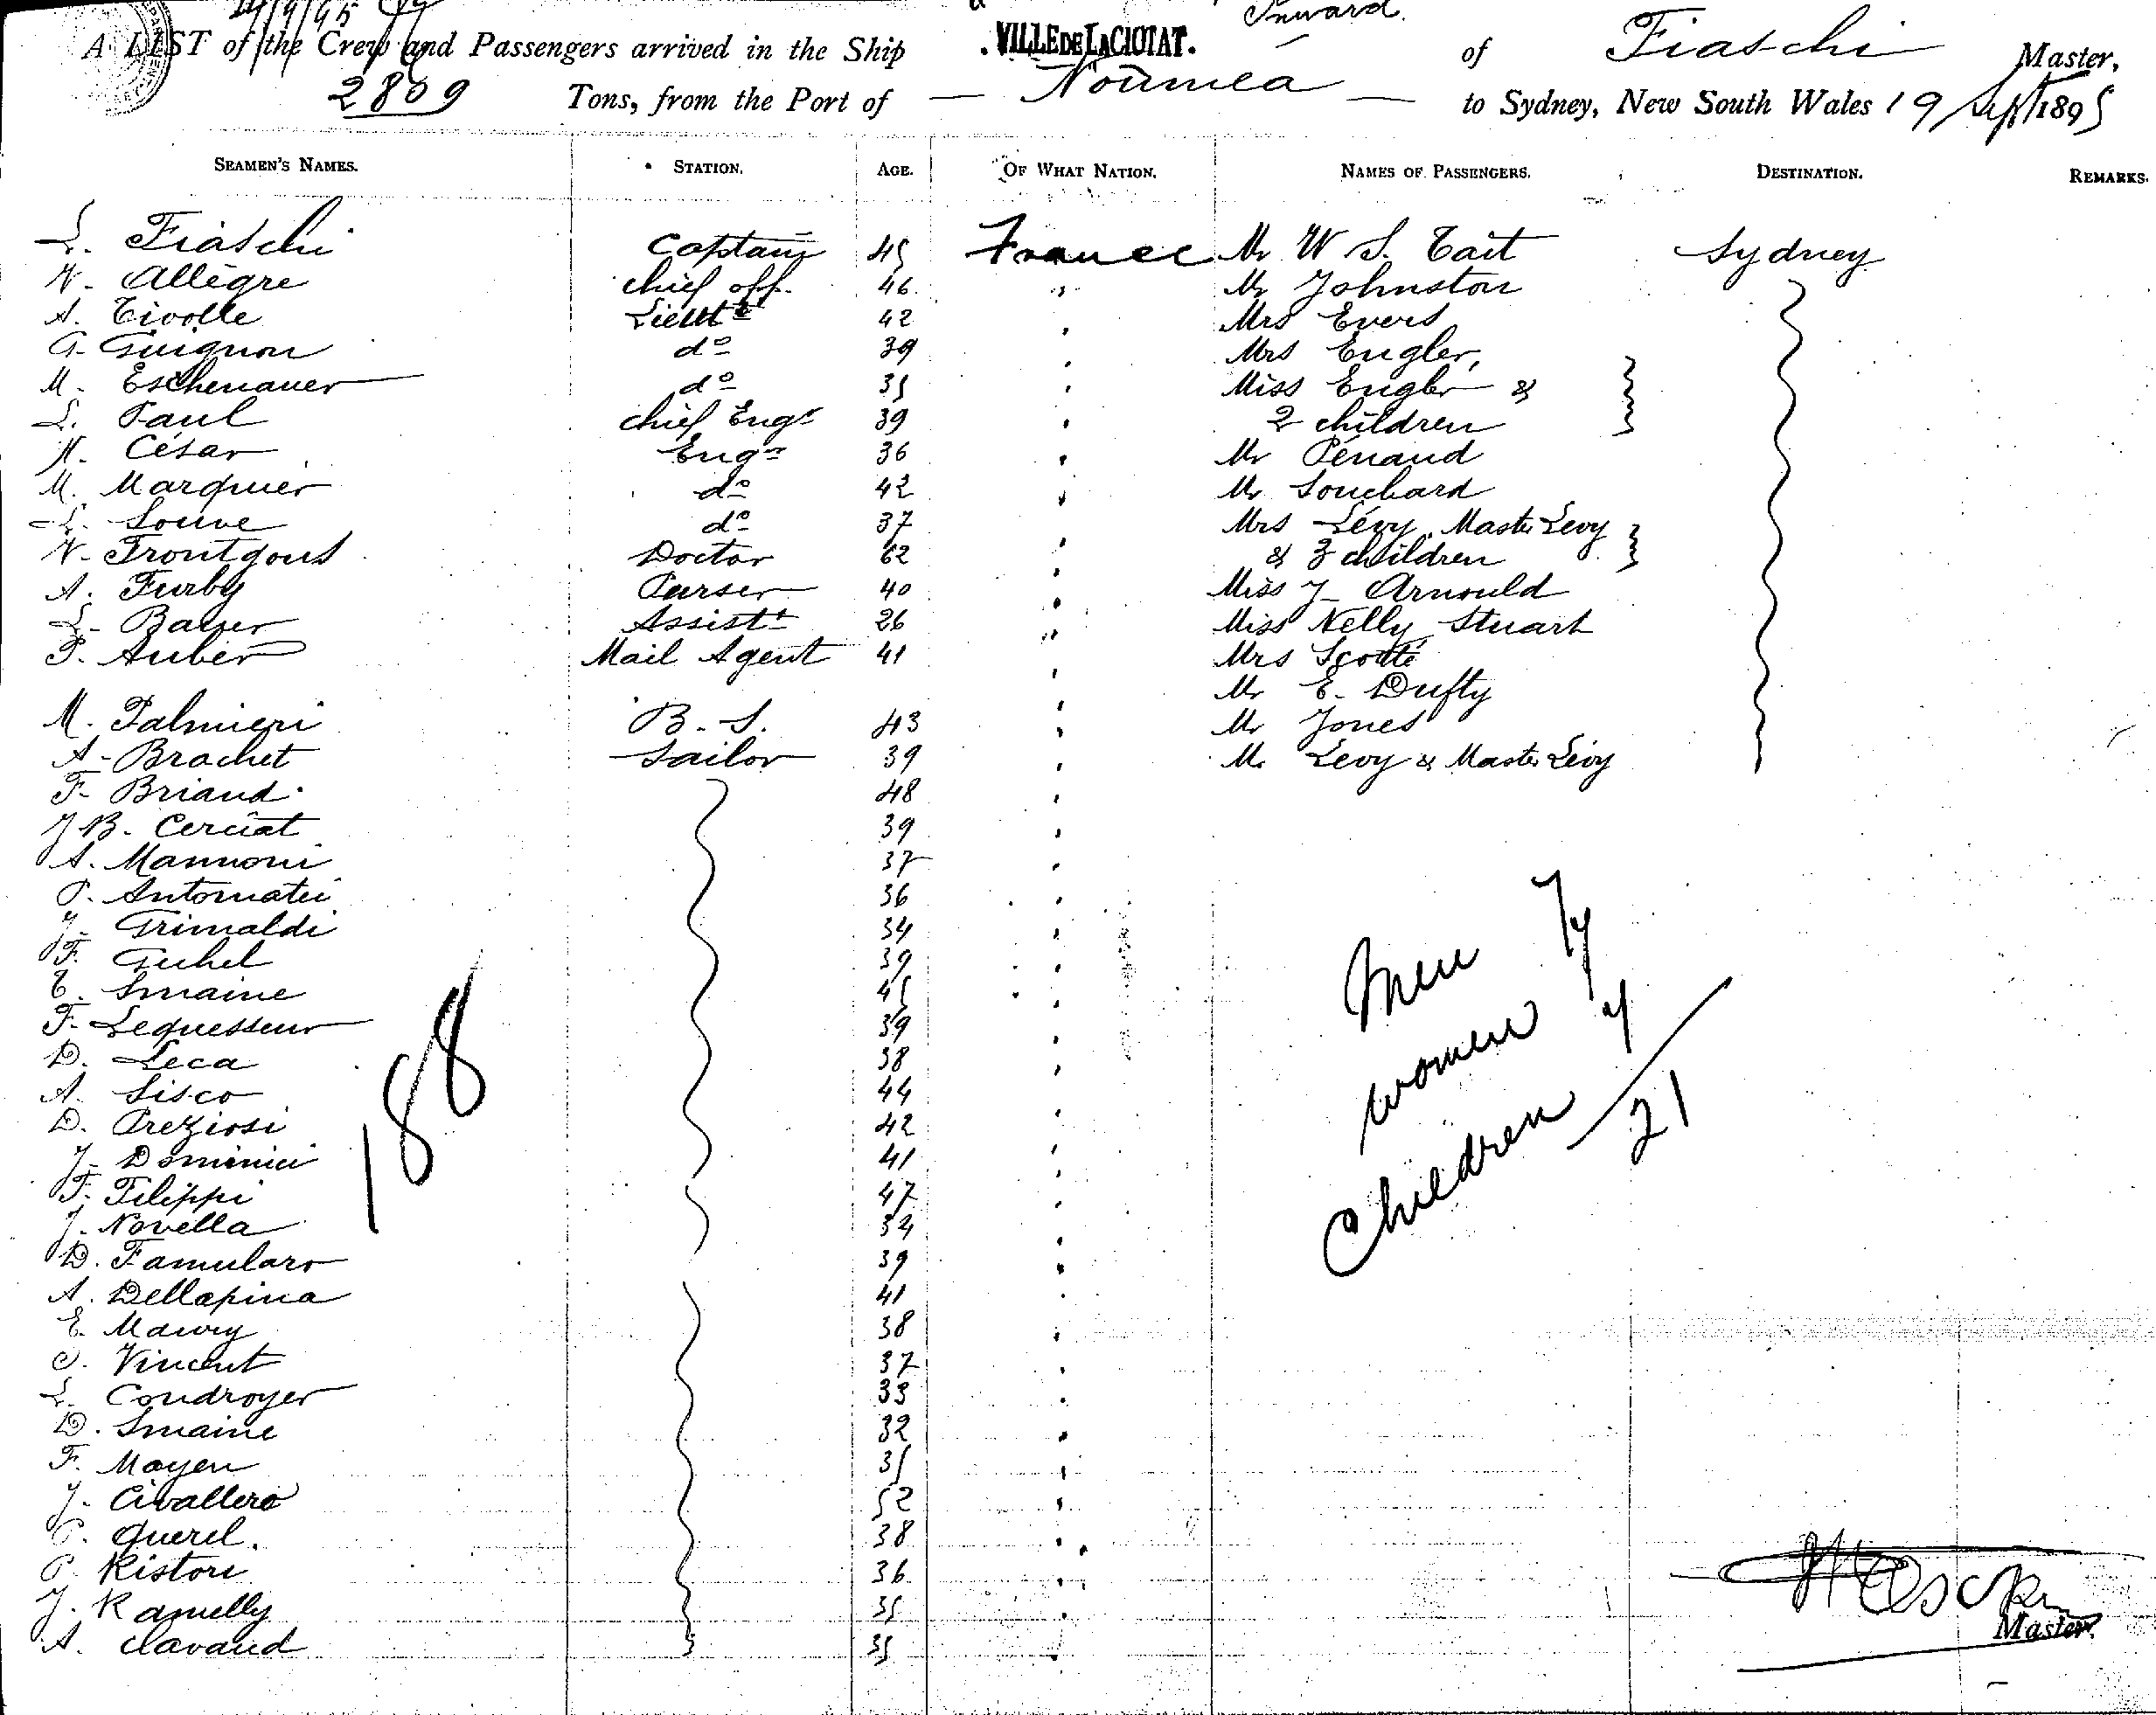 19/9/95
Inward.
A LIST of the Crew and Passengers arrived in the Ship VILLE DE LA CIOTAT. of Fiaschi Master,
2809 Tons, from the Port of — Nouméa — to Sydney, New South Wales 19 Sept 1895
SEAMEN'S NAMES. STATION. AGE. OF WHAT NATION. NAMES OF PASSENGERS. DESTINATION. REMARKS.
L. Fiaschi Captain 45 France Mr W S. Tait Sydney
N. Allègre chief off. 46 " Mr Johnston
A. Tivolle Lieutt 42 " Mrs Evers
G. Guignon do 39 " Mrs Engler,
M. Eschenauer do 35 " Miss Engler &
L. Paul chief Engr 39 " 2 children
N. César Engr 36 " Mr Pénaud
M. Marquier do 42 " Mr Souchard
L. Souve do 37 " Mrs Lévy, Master Levy
N. Trontgous Doctor 62 " & 3 children
A. Furby Purser 40 " Miss J. Arnould
L. Bayer Assistt 26 " Miss Nelly Stuart
P. Auber Mail Agent 41 " Mrs Scotté
Mr E. Dufty
M. Palmieri B. S. 43 " Mr Jones
A. Brachet Sailor 39 " Mr Levy & Master Levy
F. Briand 48 "
J B. Cerciat 39 "
A. Mannoni 37 "
P. Antomatei 36 "
J. Grimaldi 34 "
F. Guhel 39 "
E. Smaine 45 "
F. Lequesseur 39 "
D. Leca 38 "
A. Sisco 44 "
D. Preziosi 42 "
J. Dominici 41 "
F. Filippi 47 "
J. Novella 34 "
D. Famularo 39 "
A. Dellapina 41 "
E. Maury 38 "
O. Vincent 37 "
L. Coudroyer 33 "
D. Smaine 32 "
F. Mayen 35 "
J. Civallero 52 "
P. Querel. 38 "
P. Ristori 36 "
J. Ramelly 35 "
A. Clavaud 35 "
188
Men 7
women
Children
21
Master.